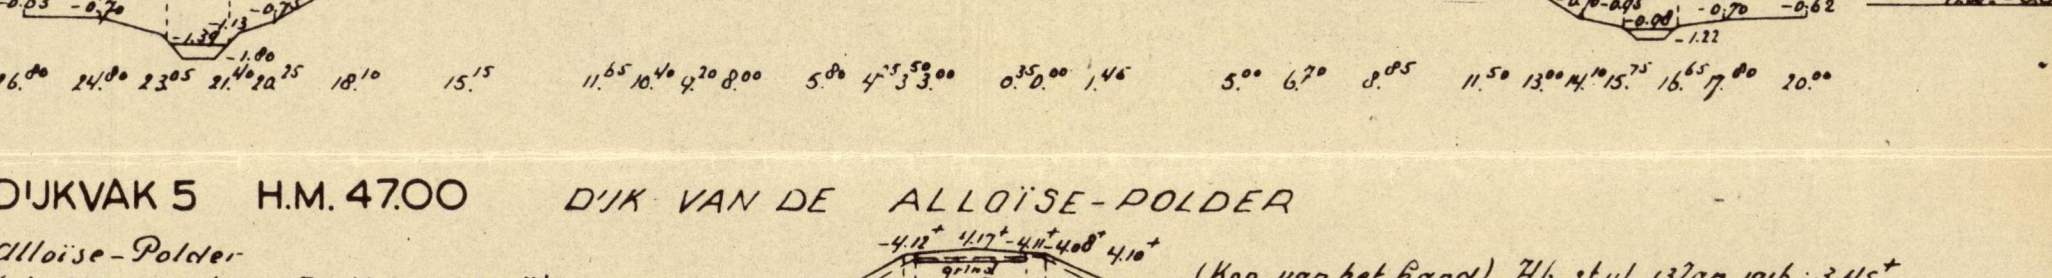 -0.70 -1.13 -0.75 -0.95 -0.98 -0.70 -0.62
-1.39 -1.80 -1.22
26.80 24.80 23.05 21.40 20.25 18.10 15.15 11.65 10.40 9.20 8.00 5.80 3.50 3.00 0.35 0.00 1.45 5.00 6.70 8.85 11.50 13.00 14.10 15.75 16.65 17.80 20.00
DIJKVAK 5 H.M. 47.00 DIJK VAN DE ALLOÏSE-POLDER
Alloïse-Polder -4.12+ 4.17+ -4.11+ -4.08+ 4.10+
grind